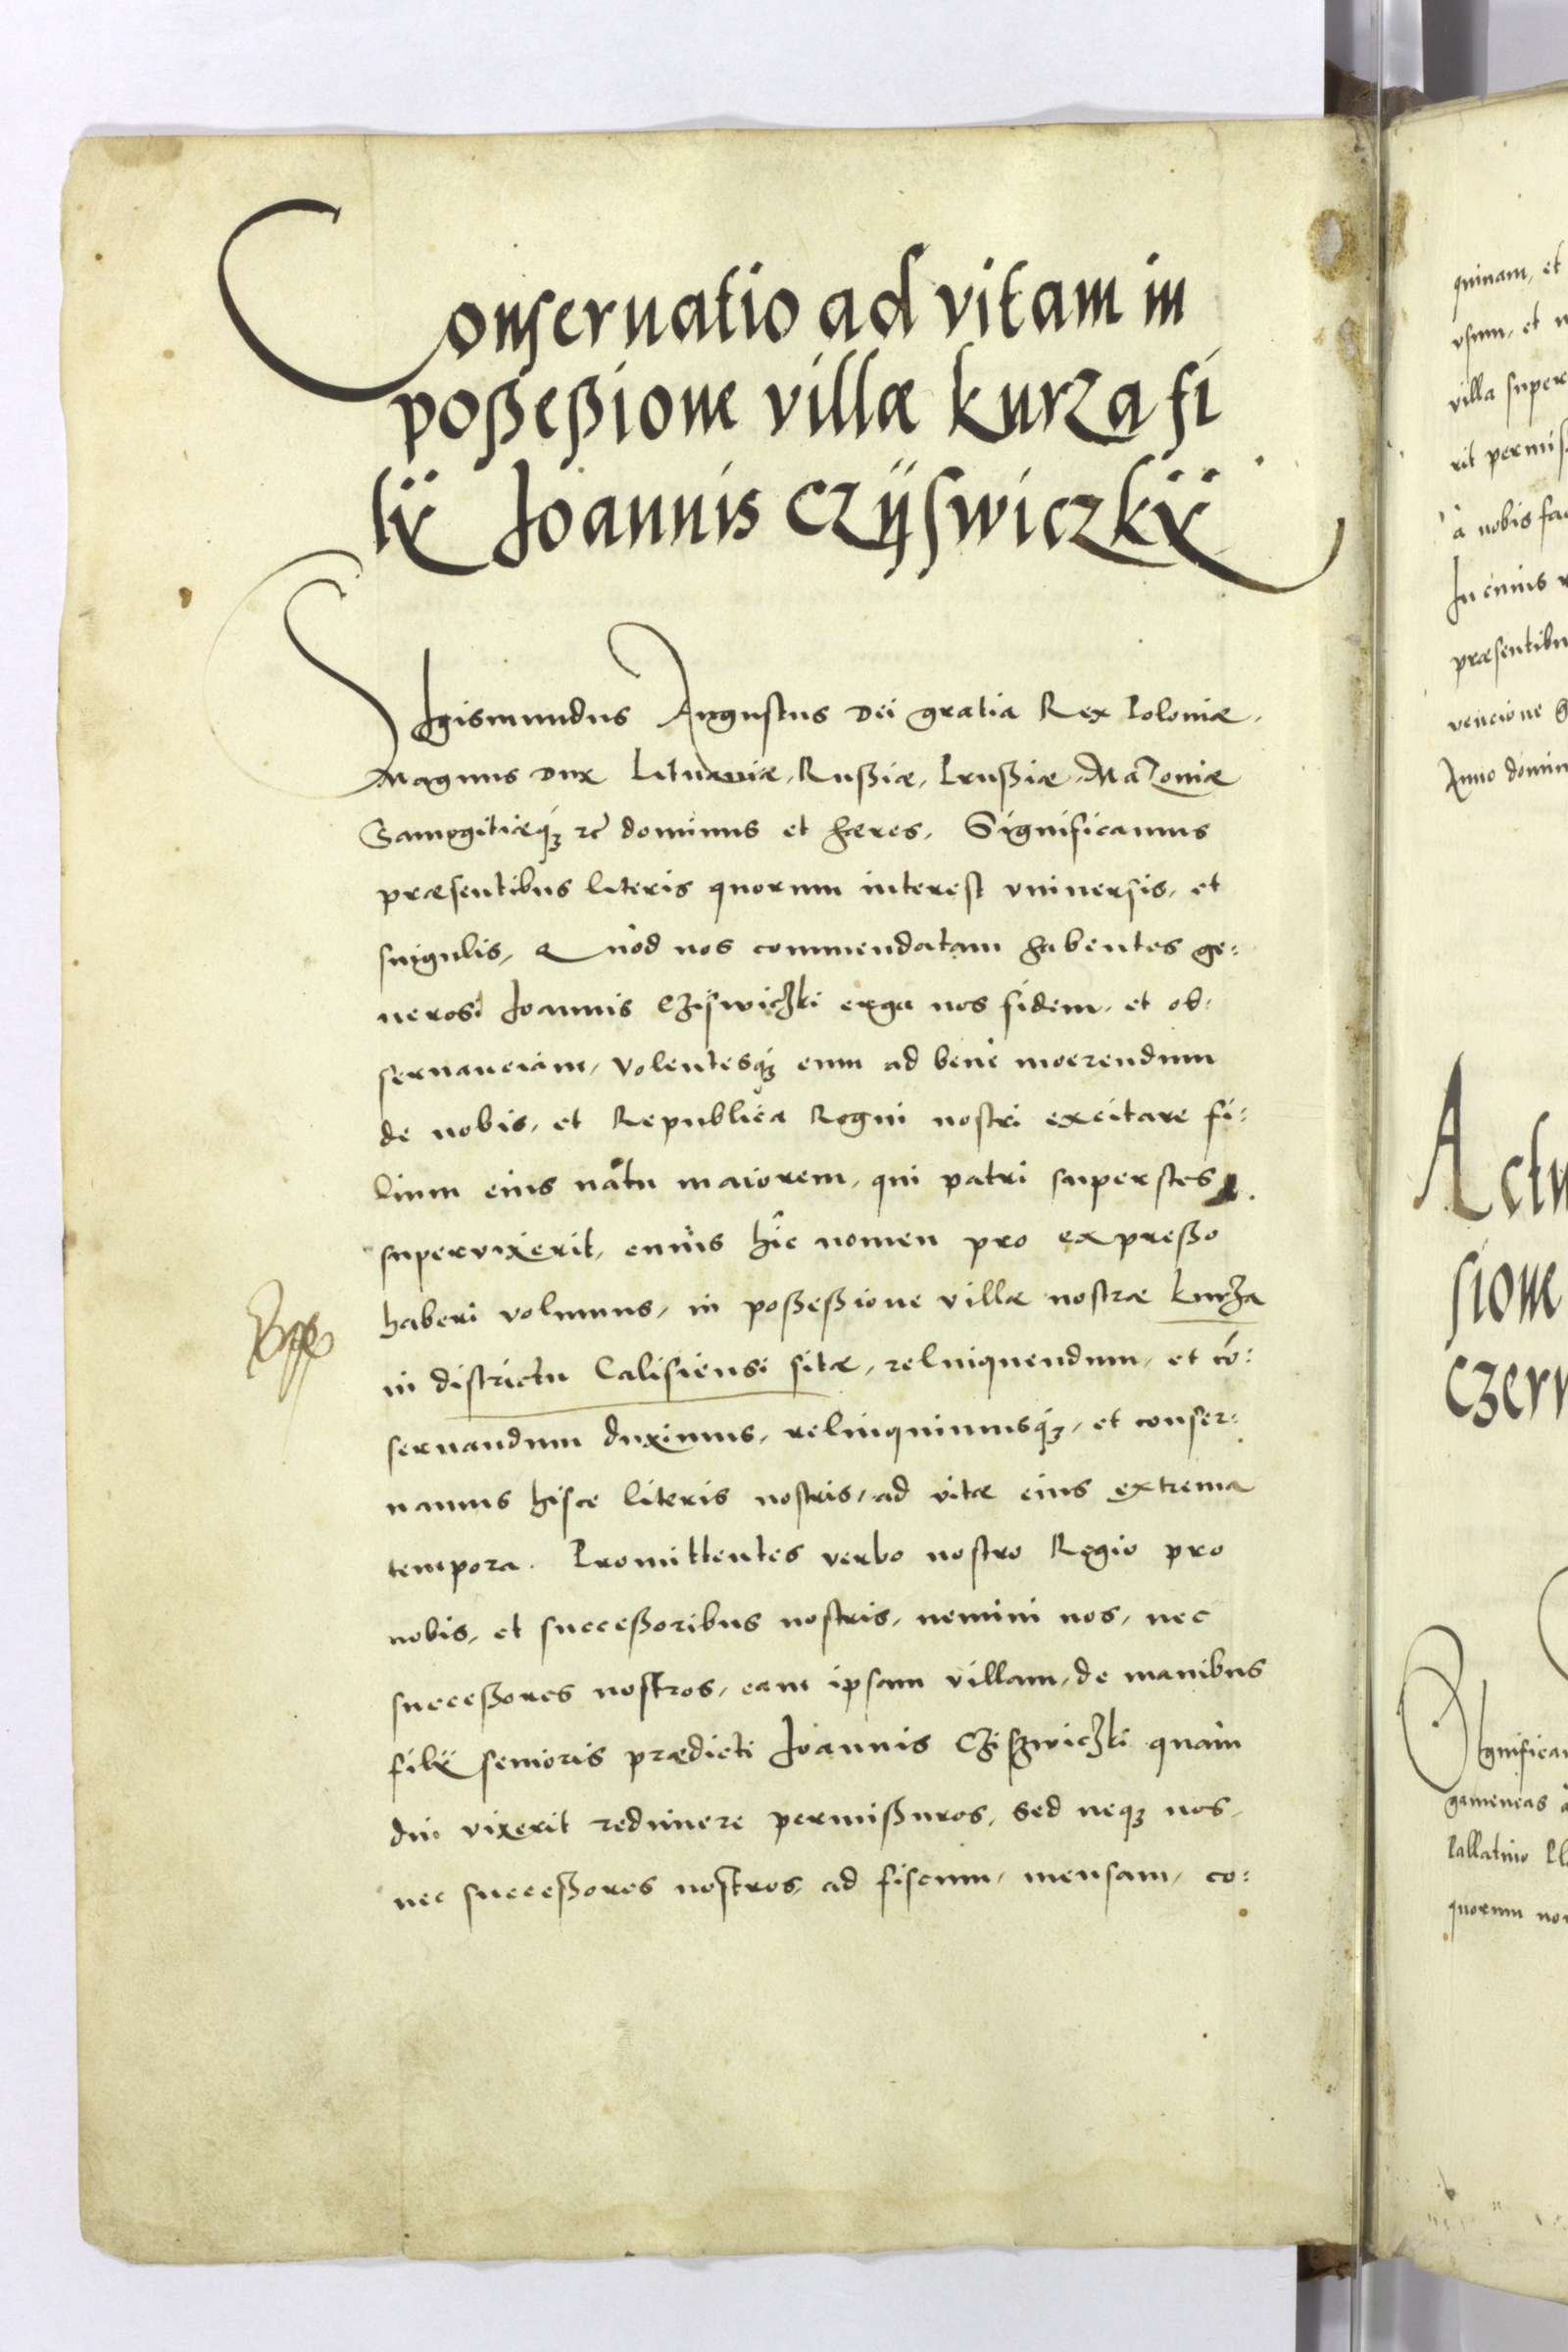 Conseruatio ad vitam in
poßeßione villæ kurza fi
lij Joannis Czijswiczkij
Sigismundus Augustus Dei gratia Rex Poloniæ,
Magnus Dux Lituaniæ, Rußiæ, Prußiæ, Mazoniæ
Samogitiæq₃ zc̃ dominus et hæres, Significamus
præsentibus literis quorum interest vniuersis, et
singulis, Quòd nos commendatam habentes ge:
nerosi Joannis Cziswiczki erga nos fidem, et ob:
seruanciam, volentesq₃ eum ad benè moerendum
de nobis, et Republica Regni nostri excitare fi:
lium eius nãtu maiorem, qui patri superstes
supervixerit, cuius hîc nomen pro expreßo
haberi volumus, in poßeßione villæ nostræ kurza
in districtu Calisiensi sitæ, relinquendum, et cõ:
seruandum duximus, relinquimusq₃, et conser:
uamus hisce literis nostris, ad vitæ eius extrema
tempora. Promittentes verbo nostro Regio pro
nobis, et succeßoribus nostris, nemini nos, nec
succeßores nostros, eam ipsam villam, de manibus
filij senioris prædicti Joannis Cziszwiczki quàm
diu vixerit redimere permißuros, sed neq₃ nos,
nec succeßores nostros, ad fiscum, mensam, co:
quinam, et
vsum, et
villa super
rit permis
à nobis fac
In cuius
præsentibu
vencione
Anno domin
Actu
sione
Czern
Significa
gameneas
Pallatino
quorum